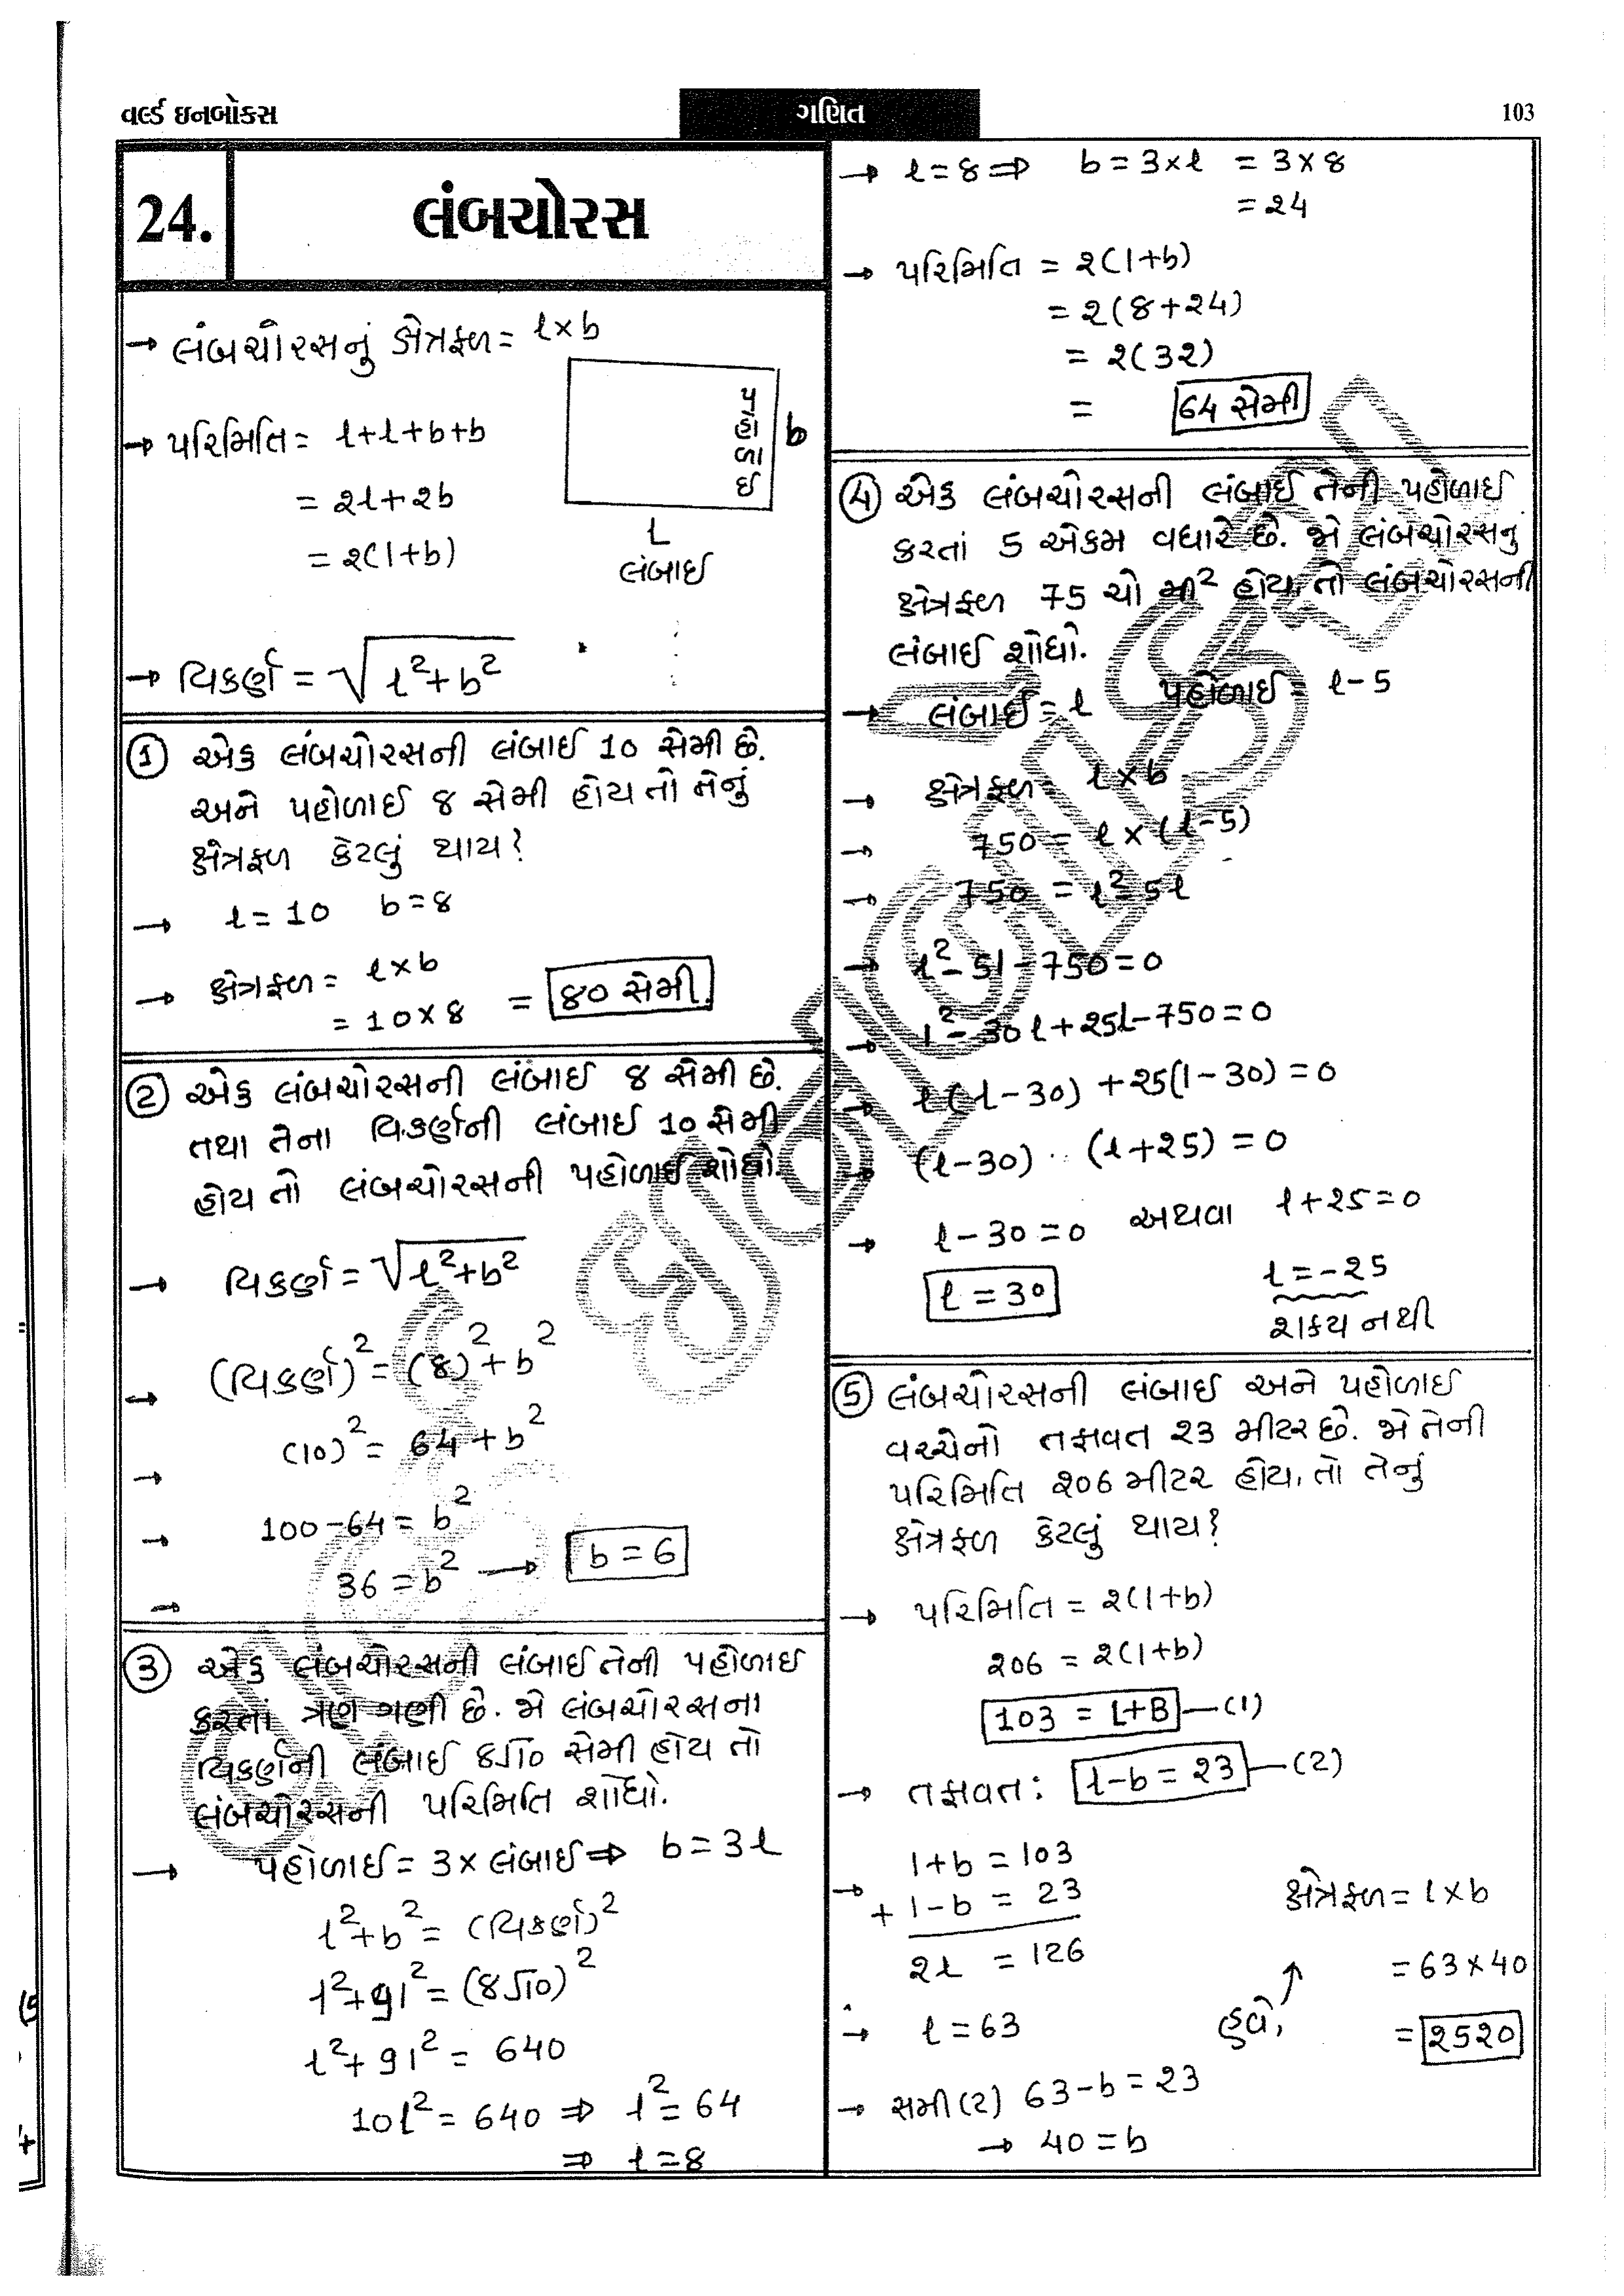 વર્લ્ડ ઇનબોક્સ
ગણિત
103
24.
લંબચોરસ
→ લંબચોરસનું ક્ષેત્રફળ = l×b
→ પરિમિતિ = l+l+b+b
= 2l+2b
= 2(l+b)
પહોળાઈ
b
L
લંબાઈ
→ વિકર્ણ = √l²+b²
① એક લંબચોરસની લંબાઈ 10 સેમી છે.
અને પહોળાઈ ૪ સેમી હોય તો તેનું
ક્ષેત્રફળ કેટલું થાય?
→ l = 10 b = ૪
→ ક્ષેત્રફળ = l×b
= 10×૪ = ૪0 સેમી.
② એક લંબચોરસની લંબાઈ ૪ સેમી છે.
તથા તેના વિકર્ણની લંબાઈ 10 સેમી
હોય તો લંબચોરસની પહોળાઈ શોધો.
→ વિકર્ણ = √l²+b²
→ (વિકર્ણ)² = (૪)²+b²
(10)² = 64+b²
→
→ 100-64 = b²
36 = b² → b = 6
→
③ એક લંબચોરસની લંબાઈ તેની પહોળાઈ
કરતાં ત્રણ ગણી છે. જો લંબચોરસના
વિકર્ણની લંબાઈ ૪√10 સેમી હોય તો
લંબચોરસની પરિમિતિ શોધો.
→ પહોળાઈ = 3× લંબાઈ ⇒ b = 3l
l²+b² = (વિકર્ણ)²
l²+9l² = (૪√10)²
l²+9l² = 640
10l² = 640 ⇒ l² = 64
⇒ l = ૪
→ l = ૪ ⇒ b = 3×l = 3×૪
= 24
→ પરિમિતિ = 2(l+b)
= 2(૪+24)
= 2(32)
= 64 સેમી
④ એક લંબચોરસની લંબાઈ તેની પહોળાઈ
કરતાં 5 એકમ વધારે છે. જો લંબચોરસનુ
ક્ષેત્રફળ 75 ચો મી² હોય, તો લંબચોરસની
લંબાઈ શોધો.
→ લંબાઈ = l પહોળાઈ = l-5
→ ક્ષેત્રફળ = l×b
→ 750 = l×(l-5)
→ 750 = l²-5l
→ l²-5l-750 = 0
→ l²-30l+25l-750 = 0
→ l(l-30)+25(l-30) = 0
→ (l-30) (l+25) = 0
→ l-30 = 0 અથવા l+25 = 0
l = 30 l = -25
શક્ય નથી
⑤ લંબચોરસની લંબાઈ અને પહોળાઈ
વચ્ચેનો તફાવત 23 મીટર છે. જો તેની
પરિમિતિ 206 મીટર હોય, તો તેનું
ક્ષેત્રફળ કેટલું થાય?
→ પરિમિતિ = 2(l+b)
206 = 2(l+b)
103 = L+B —(1)
→ તફાવત: l-b = 23 —(2)
l+b = 103
→ + l-b = 23
2l = 126
→ l = 63
→ સમી(2) 63-b = 23
→ 40 = b
હવે,
ક્ષેત્રફળ = l×b
= 63×40
= 2520